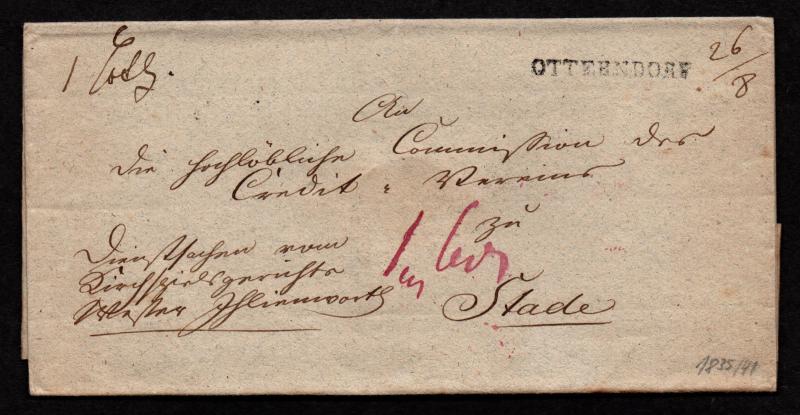 1 Loth.
OTTERNDORF
26/8
An
die hochlöbliche Commission des
Credit = Vereins
zu
Stade
Dienstsachen vom
Kirchspielsgerichte
Wester Ihlienworth
1
1835/41